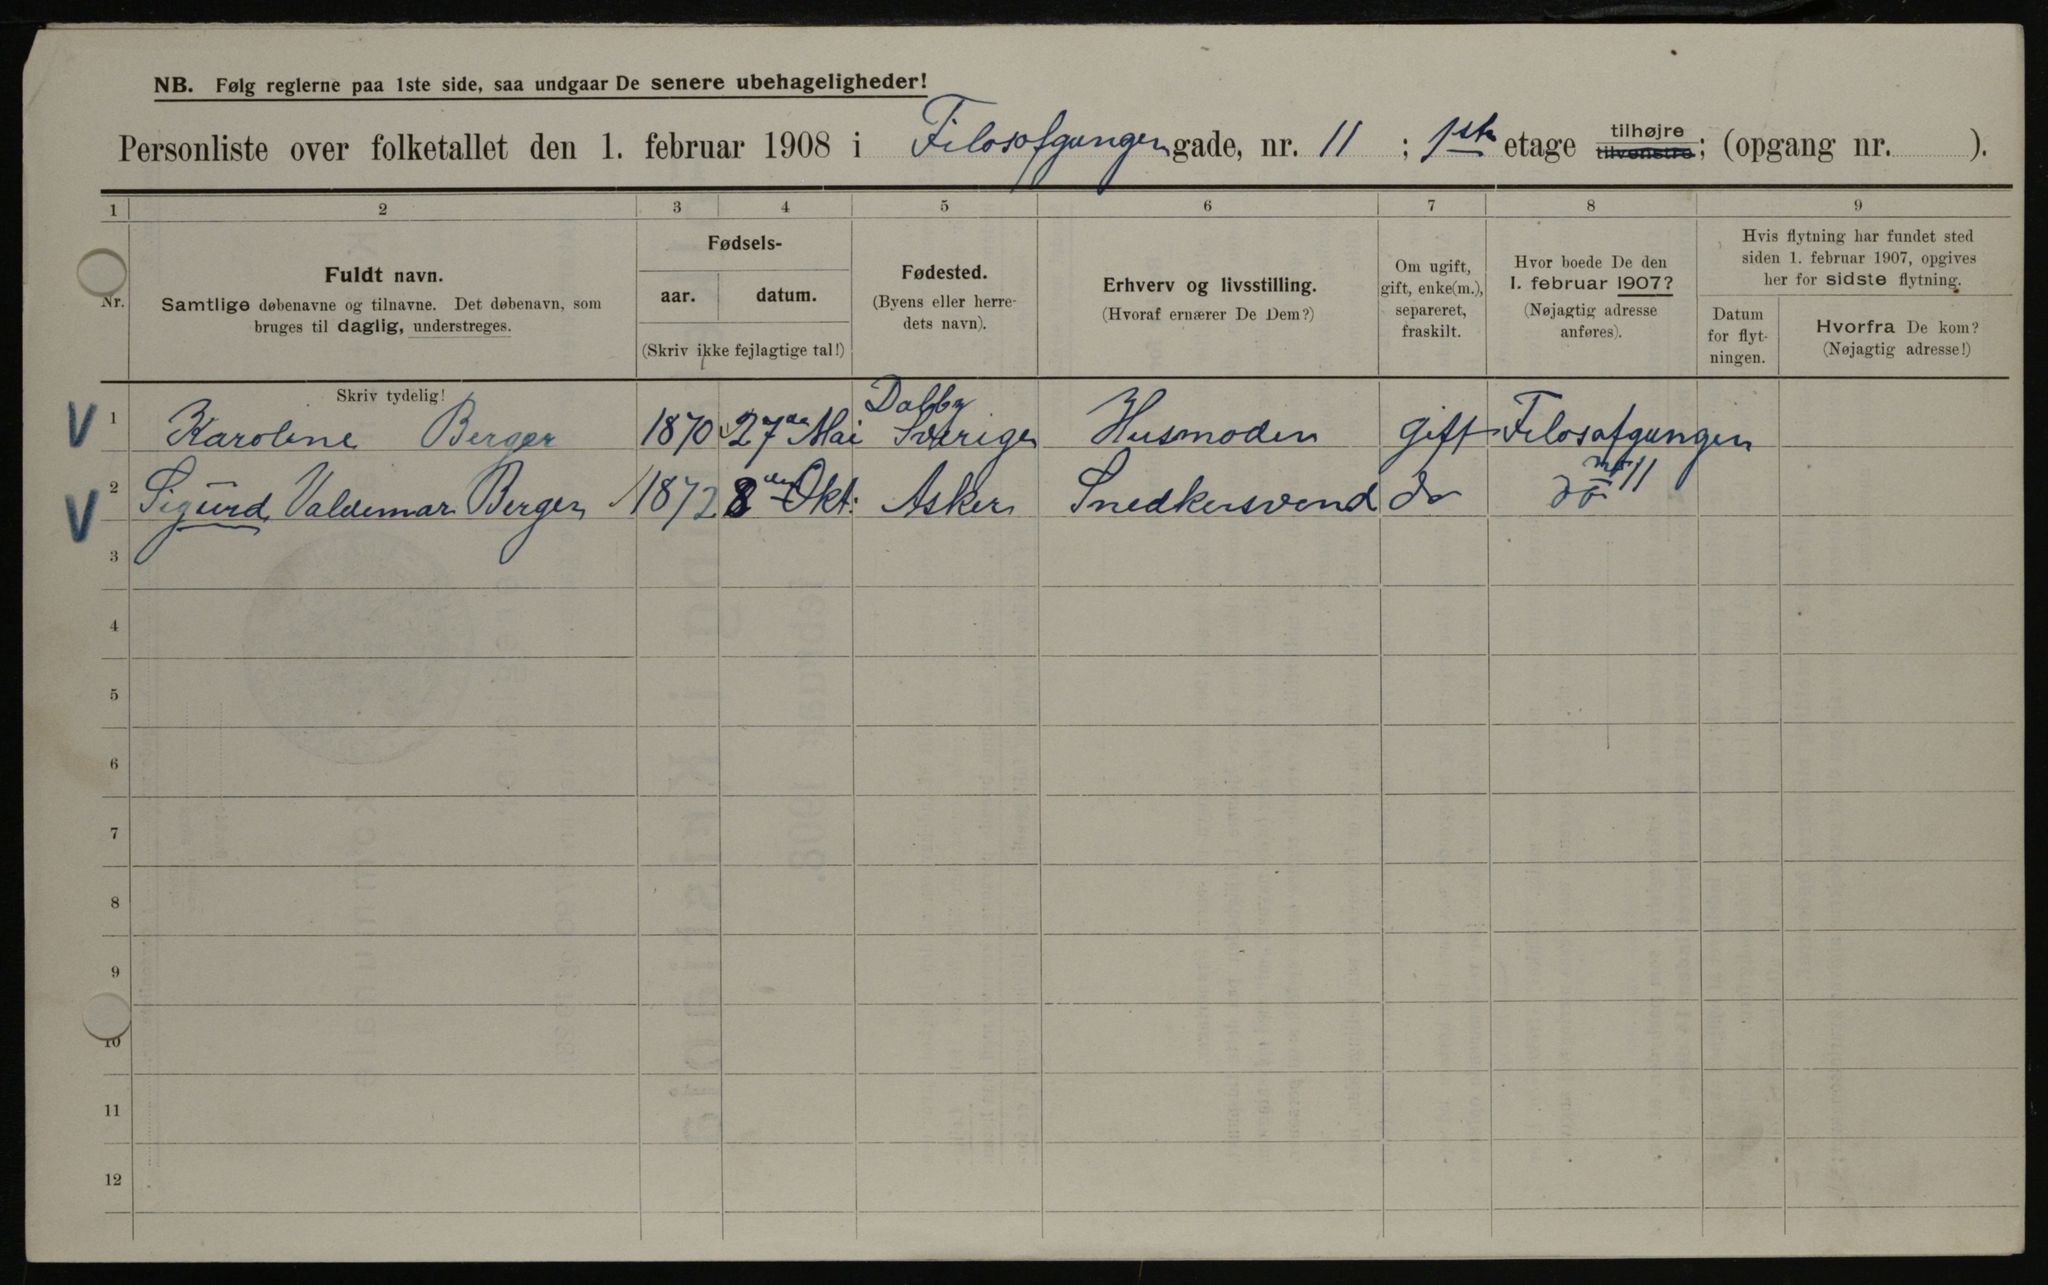 NB. Følg reglerne paa 1ste side, saa undgaar De senere ubehageligheder!
Personliste over folketallet den 1. februar 1908 i Filosofgangen gade, nr. 11 ; 1ste etage tilhøjre tilvenstre; (opgang nr. ).
1 2 3 4 5 6 7 8 9
Nr.
Fuldt navn.
Samtlige døbenavne og tilnavne. Det døbenavn, som
bruges til daglig, understreges.
Fødsels-
aar. datum.
(Skriv ikke fejlagtige tal!)
Fødested.
(Byens eller herre-
dets navn).
Erhverv og livsstilling.
(Hvoraf ernærer De Dem?)
Om ugift,
gift, enke(m.),
separeret,
fraskilt.
Hvor boede De den
1. februar 1907?
(Nøjagtig adresse
anføres).
Hvis flytning har fundet sted
siden 1. februar 1907, opgives
her for sidste flytning.
Datum
for flyt-
ningen.
Hvorfra De kom?
(Nøjagtig adresse!)
Skriv tydelig!
V 1 Karoline Berger 1870 27de Mai Dalby Sverige Husmoder gift Filosofgangen
nr 11
V 2 Sigurd Valdemar Berger 1872 8de Okt. Asker Snedkersvend do do
3
4
5
6
7
8
9
10
11
12